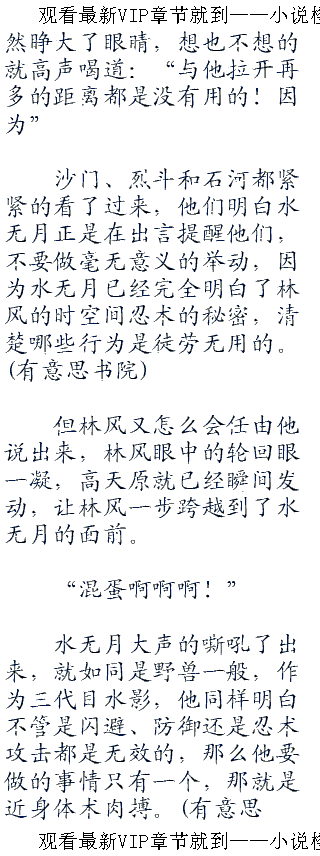 观看最新VIP章节就到——小说检
然睁大了眼睛，想也不想的
就高声喝道：“与他拉开再
多的距离都是没有用的！因
为”
沙门、烈斗和石河都紧
紧的看了过来，他们明白水
无月正是在出言提醒他们，
不要做毫无意义的举动，因
为水无月已经完全明白了林
风的时空间忍术的秘密，清
楚哪些行为是徒劳无用的。
(有意思书院)
但林风又怎么会任由他
说出来，林风眼中的轮回眼
一凝，高天原就已经瞬间发
动，让林风一步跨越到了水
无月的面前。
“混蛋啊啊啊！”
水无月大声的嘶吼了出
来，就如同是野兽一般，作
为三代目水影，他同样明白
不管是闪避、防御还是忍术
攻击都是无效的，那么他要
做的事情只有一个，那就是
近身体术肉搏。(有意思
观看最新VIP章节就到——小说检